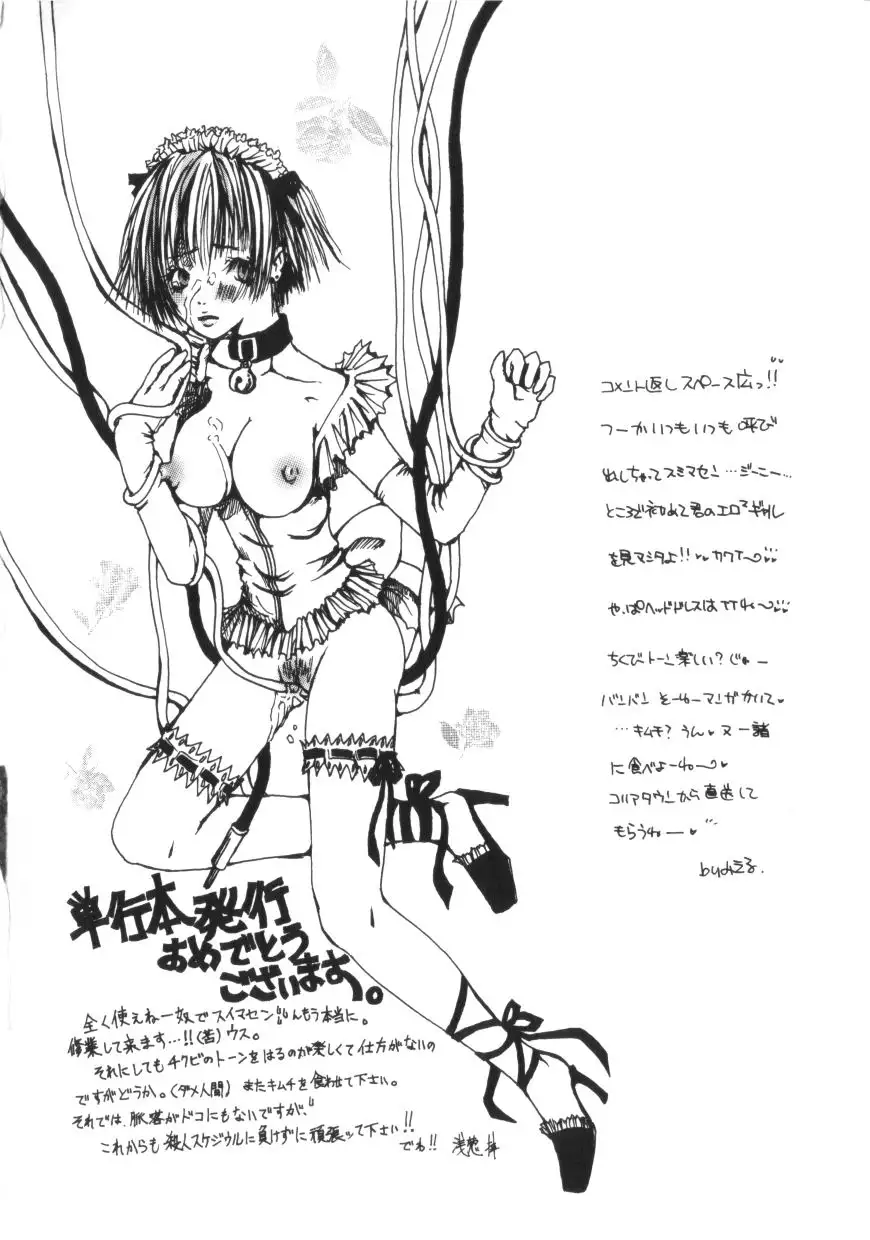 コメント返しスペース広っ!!
つーかいつもいつも呼び
出しちゃってスミマセン…ジーニー…
ところで初めて君のエロマンガ
を見マシタよ!!♥カワイー〜
やっぱヘッドドレスはイイね〜♡
ちくびトーン楽しい?じゃー
バンバンそーゆーマンガかいて♥
…キムチ?うん♥又一緒
に食べよーね〜♥
コリアタウンから直送して
もらうねー♥
byみえる.
単行本発行
おめでとう
ございます。
全く使えねー奴でスイマセン。もう本当に。
修業して来ます…!!(苦)ウス。
それにしてもチクビのトーンをはるのが楽しくて仕方がないの
ですがどうか。(ダメ人間)またキムチを食わせて下さい。
それでは、脈絡がドコにもないですが、
これからも殺人スケジウルに負けずに頑張ッて下さい!!
でわ!!